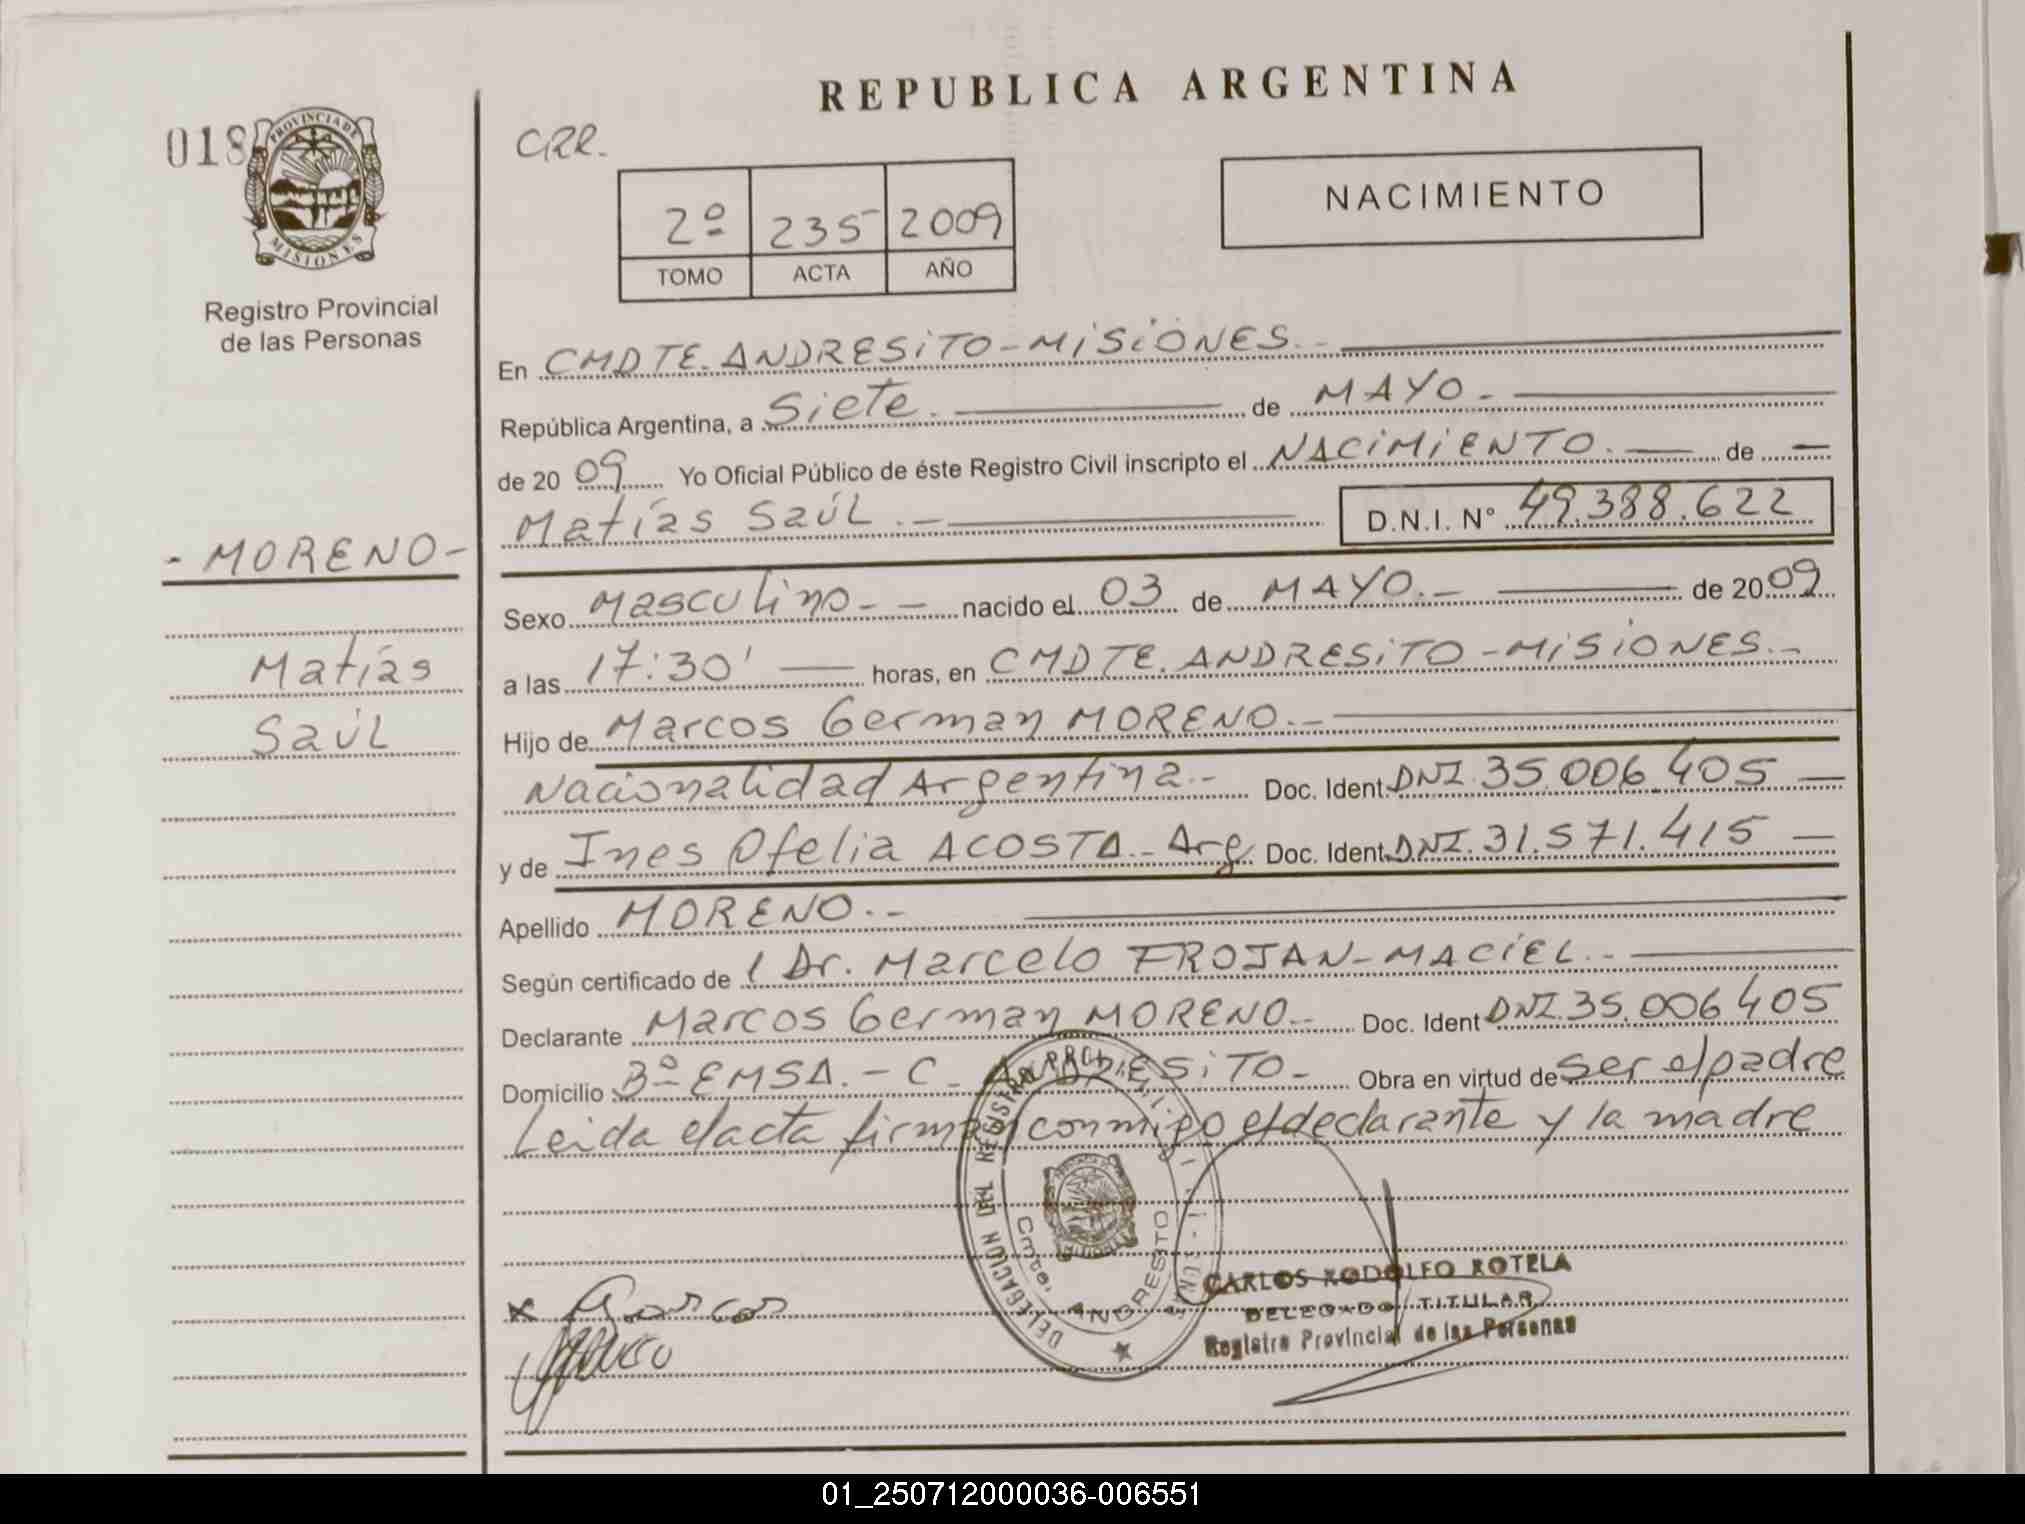 REPUBLICA ARGENTINA
018
PROVINCIA DE
MISIONES
Registro Provincial
de las Personas
CRR.
2º 235 2009
TOMO ACTA AÑO
NACIMIENTO
En CMDTE. ANDRESiTO - MiSiONES.-
República Argentina, a Siete. de MAYO.-
de 2009 Yo Oficial Público de éste Registro Civil inscripto el NACiMiENTO. de —
Matías Saúl.- D.N.I. Nº 49.388.622
- MORENO -
Matías
Saúl
Sexo Masculino.- nacido el 03 de MAYO.- de 2009
a las 17:30' horas, en CMDTE. ANDRESiTO - MiSiONES.-
Hijo de Marcos German MORENO.-
Nacionalidad Argentina.- Doc. Ident. DNI. 35.006.405 —
y de Ines Ofelia ACOSTA.- Arg. Doc. Ident. DNI. 31.571.415 —
Apellido MORENO.-
Según certificado de Dr. Marcelo FROJAN - MACiEL.-
Declarante Marcos German MORENO.- Doc. Ident DNI. 35.006405
Domicilio Bº EMSA.- C. ANDRESiTO - Obra en virtud de ser el padre
Leida el acta firman conmigo el declarante y la madre
DELEGACION DEL REGISTRO
Cmte. ANDRESITO
x Marcos
CARLOS RODOLFO ROTELA
DELEGADO TITULAR
Registro Provincial de las Personas
01_250712000036-006551